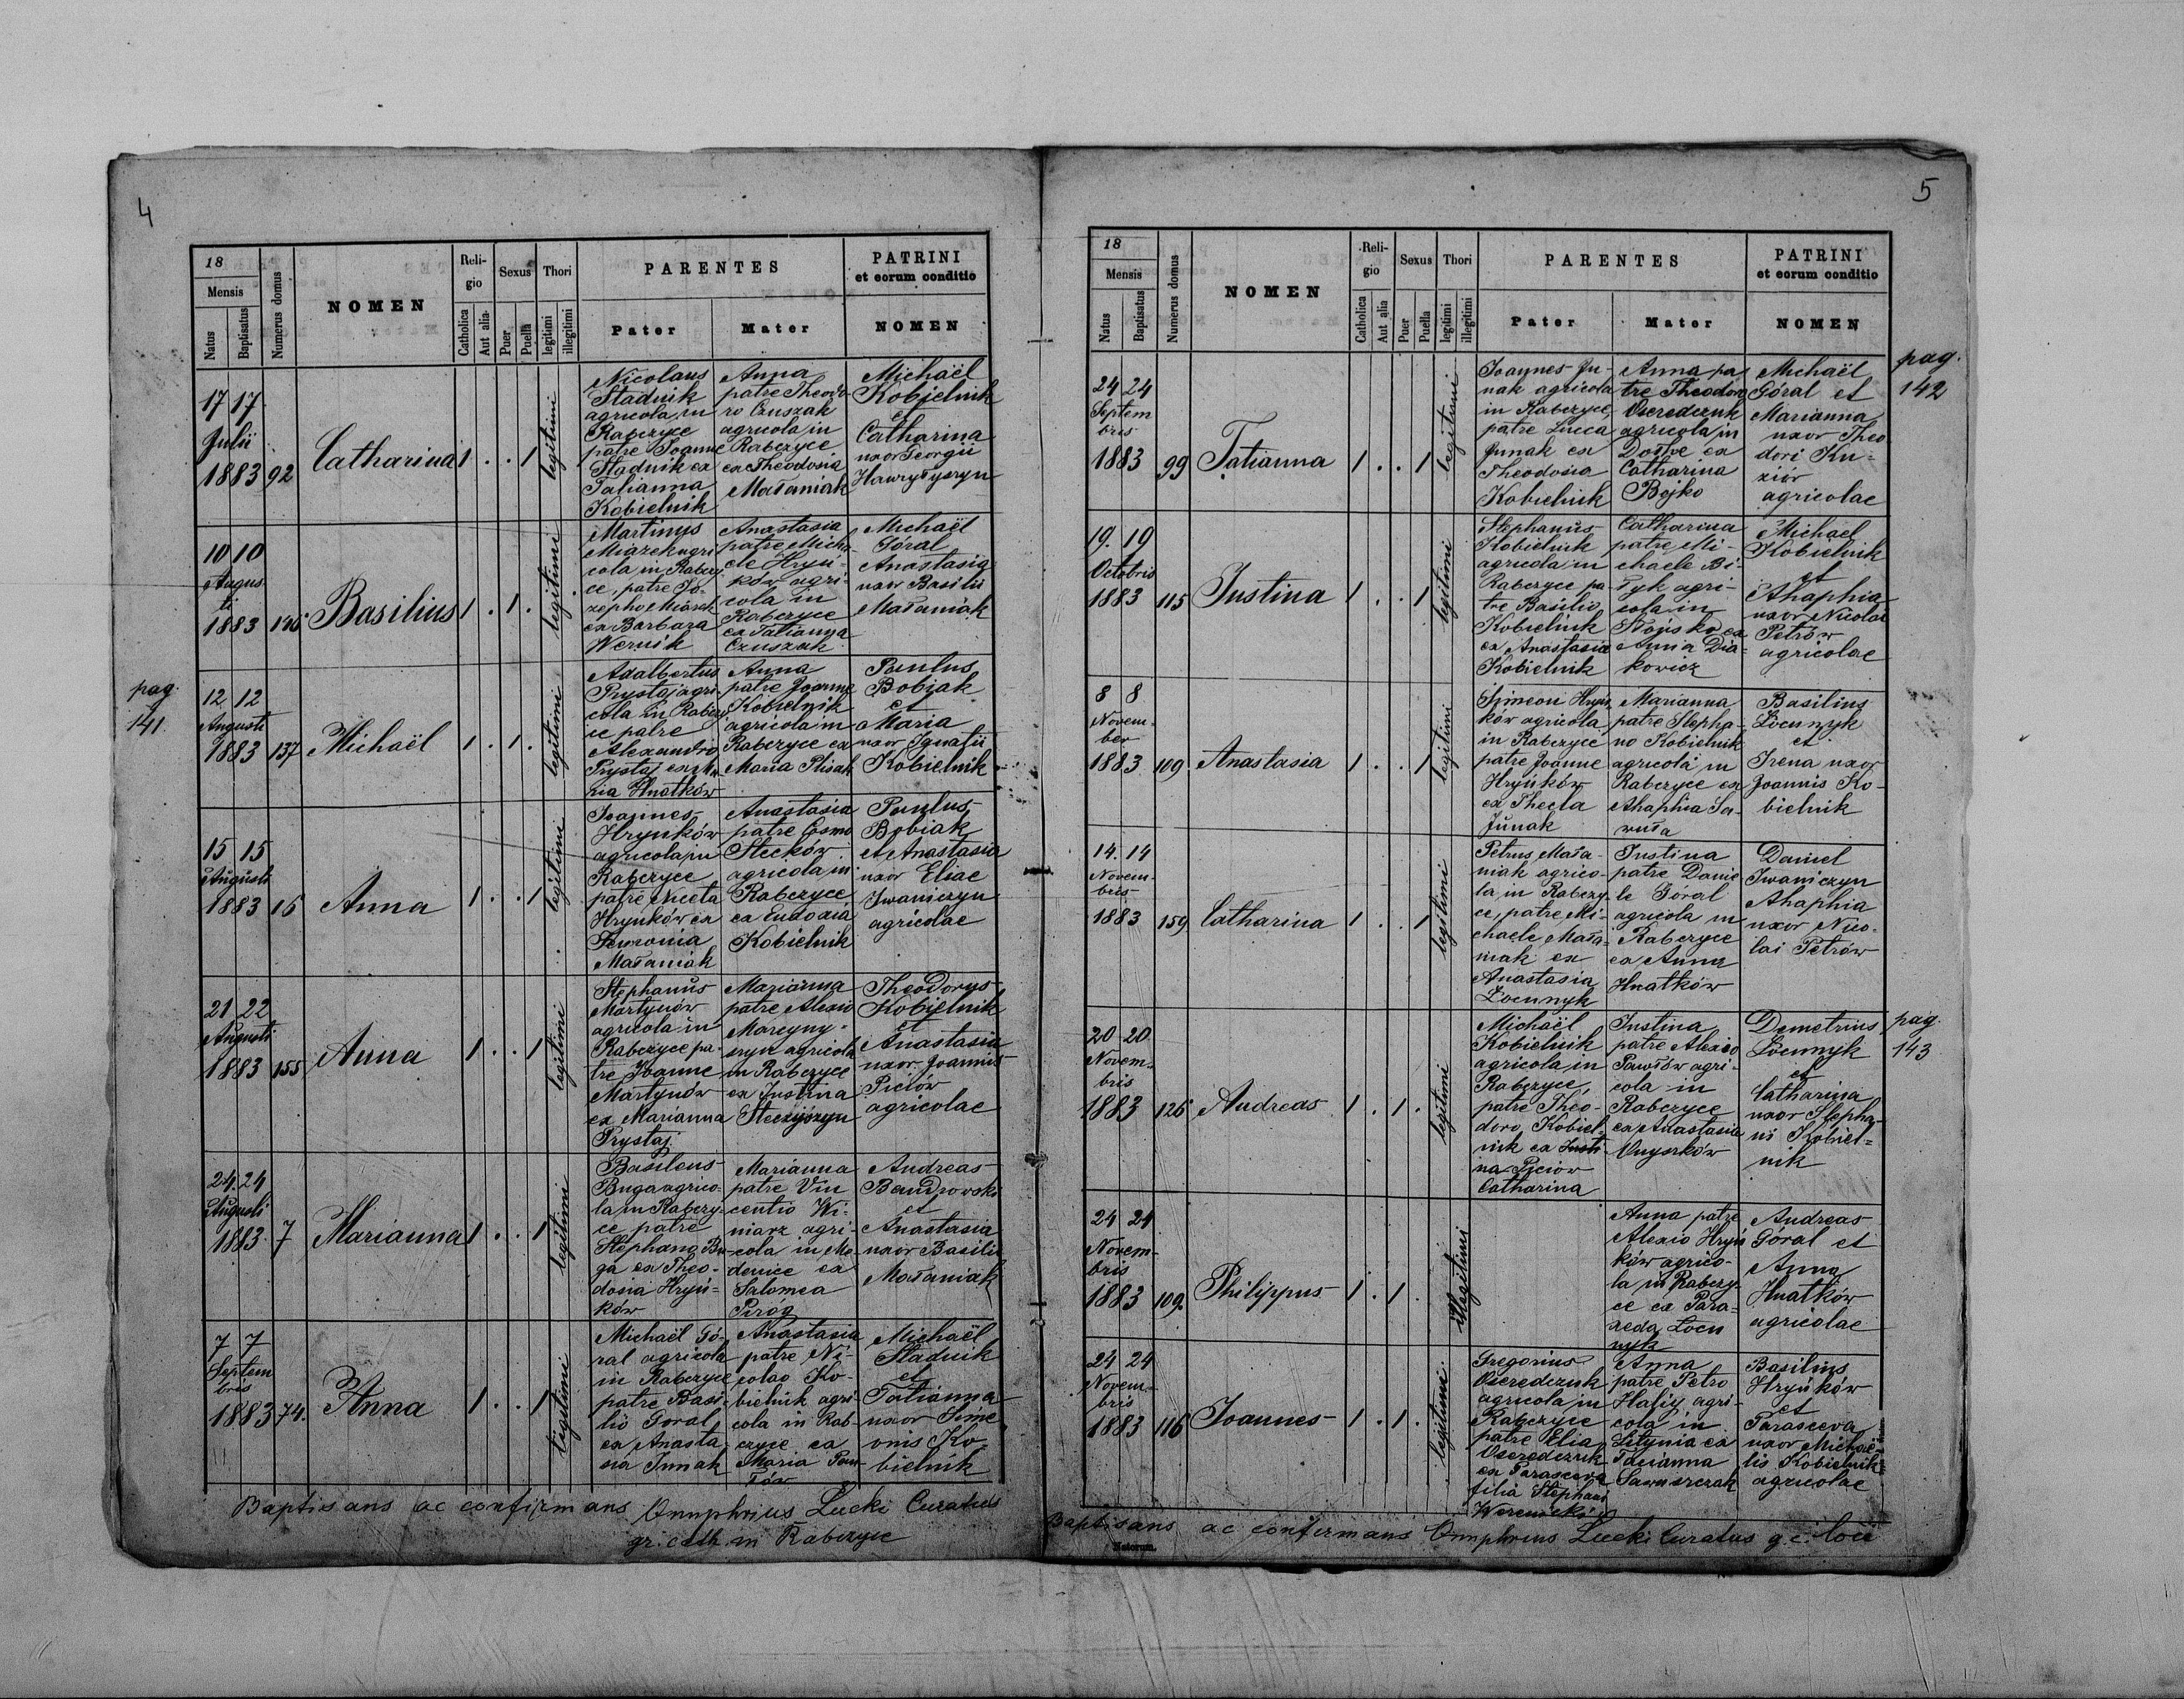 4
18
Mensis
Natus
Baptisatus
Numerus domus
NOMEN
Religio
Catholica
Aut alia
Sexus
Puer
Puella
Thori
legitimi
illegitimi
PARENTES
Pater
Mater
PATRINI
et eorum conditio
NOMEN
17 17
Julii
1883
92
Catharina
1 . . 1
legitimi
Nicolaus
Stadnik
agricola in
Rabczyce
patre Joanne
Stadnik ex
Tatianna
Kobielnik
Anna
patre Theodo-
ro Czuszak
agricola in
Rabczyce
ex Theodosia
Małaniak
Michaël
Kobielnik
et
Catharina
uxor Georgii
Hawryłyszyn
10 10
Augus
ti
1883
Basilius
1 . 1 .
legitimi
Martinus
Miazek agri
cola in Rabczy
ce, patre Jo-
zepho Miazek
ex Barbara
Wernik
Anastasia
patre Micha-
ele Hryń-
ków agri-
cola in
Rabczyce
ex Tatianna
Czuszak
Michaël
Góral
Anastasia
uxor Basilii
Małaniak
pag.
141
12 12
Augusti
1883
137
Michaël
1 . 1 .
legitimi
Adalbertus
Prystaj agri-
cola in Rabczy-
ce patre
Alexandro
Prystaj ex An-
nia Hnatków
Anna
patre Joanne
Kobielnik
agricola in
Rabczyce ex
Maria Plisak
Paulus
Bobiak
et
Maria
uxor Ignatii
Kobielnik
15 15
Augusti
1883
15
Anna
1 . . 1
legitimi
Joannes
Hrynków
agricola in
Rabczyce
patre Niceta
Hrynków ex
Małaniak
Anastasia
patre Cosmo
Stecków
agricola in
Rabczyce
ex Eudoxia
Kobielnik
Paulus
Bobiak
et Anastasia
uxor Eliae
Iwaniczyn
agricolae
21 22
Augusti
1883
155
Anna
1 . . 1
legitimi
Stephanus
Martynów
agricola in
Rabczyce pa-
tre Joanne
Martynów
ex Marianna
Prystaj
Marianna
patre Alexio
Marcyny-
szyn agricola
in Rabczyce
ex Justina
Steczyszyn
Theodorus
Kobielnik
et
Anastasia
uxor Joannis
Piciów
agricolae
24. 24
Augusti
1883
7
Marianna
1 . . 1
legitimi
Basileus
Buga agrico-
la in Rabczy-
ce patre
Stephano Bu-
ga ex Theo-
dosia Hryń-
ków
Marianna
patre Vin
centio Wi-
niarz agri-
cola in Me-
denice ex
Salomea
Piróg
Andreas
Bandrowski
et
Anastasia
uxor Basilii
Małaniak
7 7
Septem
bris
1883
74.
Anna
1 . . 1
legitimi
Michaël Gó-
ral agricola
in Rabczyce
patre Basi-
lio Goral
ex Anasta
sia Junak
Anastasia
patre Ni-
colao Ko-
bielnik agri-
cola in Rab-
czyce ex
Maria Paw-
łów
Michaël
Stadnik
et
Tatianna
uxor Sime
onis Ko-
bielnik
Baptisans ac confirmans Onuphrius Lucki Curatus
gr. cath. in Rabczyce
5
18
Mensis
Natus
Baptisatus
Numerus domus
NOMEN
Religio
Catholica
Aut alia
Sexus
Puer
Puella
Thori
legitimi
illegitimi
PARENTES
Pater
Mater
PATRINI
et eorum conditio
NOMEN
pag.
142
24 24
Septem
bris
1883
99
Tatianna
1 . . 1
legitimi
Joannes Ju-
nak agricola
in Rabczyce,
patre Lucca
Junak ex
Theodosia
Kobielnik
Anna pa
tre Theodoro
Oseredczuk
agricola in
Dołhe ex
Catharina
Bojko
Michaël
Góral et
Marianna
uxor Theo
dori Ku-
ziór
agricolae
19. 19
Octobris
1883
115
Justina
1 . . 1
legitimi
Stephanus
Kobielnik
agricola in
Rabczyce pa-
tre Basilio
Kobielnik
ex Anastasia
Kobielnik
Catharina
patre Mi-
chaele Bi-
łyk agri-
cola in
ex
Anna Dia-
kowicz
Michaël
Kobielnik
et
Ahaphia
uxor Nicolai
Petrów
agricolae
8 8
Novem-
ber
1883
109
Anastasia
1 . . 1
legitimi
Simeon Hryń
ków agricola
in Rabczyce
patre Joanne
Hryńków
ex Thecla
Junak
Marianna
patre Stepha-
no Kobielnik
agricola in
Rabczyce ex
Ahaphia Sa-
wuła
Basilius
Łocunyk
et
Irena uxor
Joannis Ko-
bielnik
14. 14
Novem-
bris
1883
159
Catharina
1 . . 1
legitimi
Petrus Mała-
niak agrico-
la in Rabczy-
ce, patre Mi-
chaele Mała-
niak ex
Anastasia
Łocunyk
Justina
patre Danie
le Góral
agricola in
Rabczyce
ex Anna
Hnatków
Daniel
Iwaniczyn
Ahaphia
uxor Nico-
lai Petrów
pag.
143
20 20
Novem-
bris
1883
126
Andreas
1 . 1 .
legitimi
Michaël
Kobielnik
agricola in
Rabczyce,
patre Theo-
doro Kobiel-
nik ex Justi
na Piciow
Catharina
Justina
patre Alexio
Pawłów agri-
cola in
Rabczyce
ex Anastasia
Onyszków
Demetrius
Łocunyk
et
Catharina
uxor Stepha-
ni Kobiel-
nik
24 24
Novem-
bris
1883
109.
Philippus
1 . 1 .
illegitimi
Anna patre
Alexio Hryń
ków agrico-
la in Rabczy-
ce ex Para-
xeda Łocu
nyk
Andreas
Góral et
Anna
Hnatków
agricolae
24 24
Novem-
bris
1883
116
Joannes
1 . 1 .
legitimi
Gregorius
Oseredczuk
agricola in
Rabczyce
patre Elia
Oseredczuk
ex Parasceva
filia Stephani
Werenicki
Anna
patre Petro
Haliy agri-
cola in
Litynia ex
Tacianna
Sawuszczak
Basilius
Hryńków
et
Parasceva
uxor Michaë-
lis Kobielnik
agricolae
Baptisans ac confirmans Onuphrius Lucki Curatus g. c. loci
Natorum.